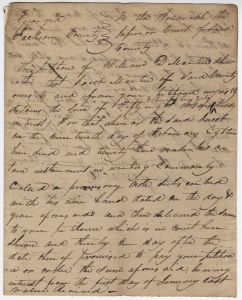 Georgia To the Honorable the
Jackson County Inferior Court of said
County
The petition of William D Martin shew
eth that Jacob Martin of said County
owes to and from your petitioner
the sum of Fifty
For that whereas the said Jacob
on the nineteenth day of February Eighteen
hundred and twenty three made his cer
tain instrument in writing Commonly
Called a promissory note subscribed
with his own hand dated on the day &
year aforesaid and then delivered the same
to your
shown and thereby one day after the
date thereof promised to pay your petition
er or order the sum aforesaid bearing
interest from the first day of January last
value received